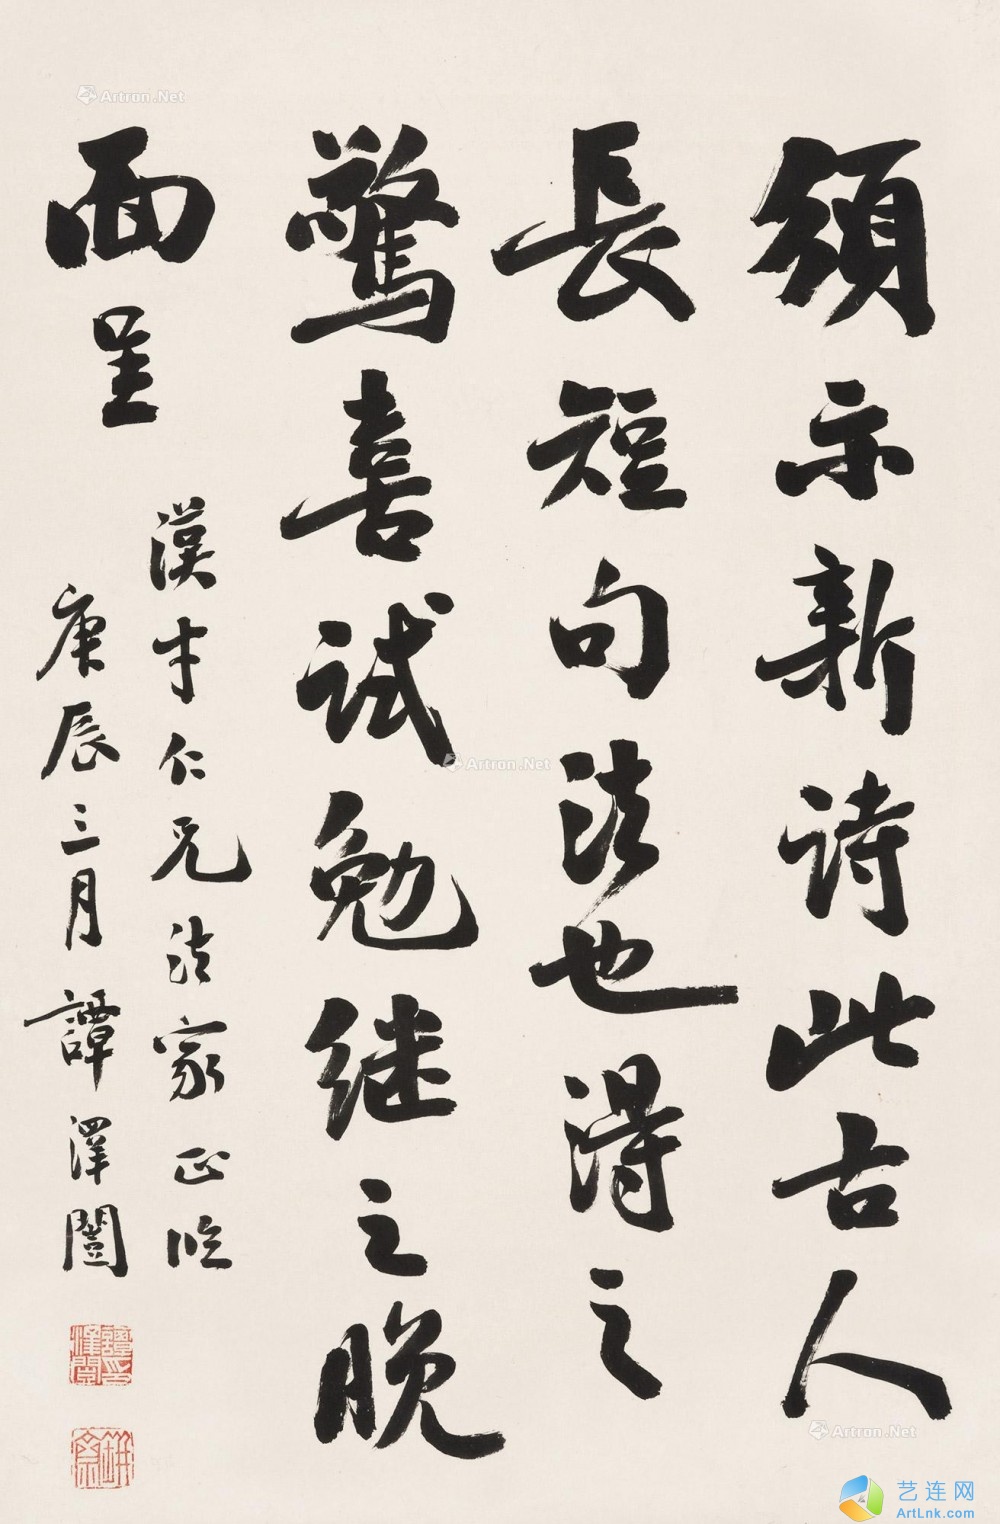 頒示新詩此古人
長短句法也得之
驚喜試勉继之晚
面呈
漢才仁兄法家正临
庚辰三月譚澤闓
譚澤闓印
瓶齋
Artron.Net
Artron.Net
Artron.Net
艺连网
ArtLnk.com